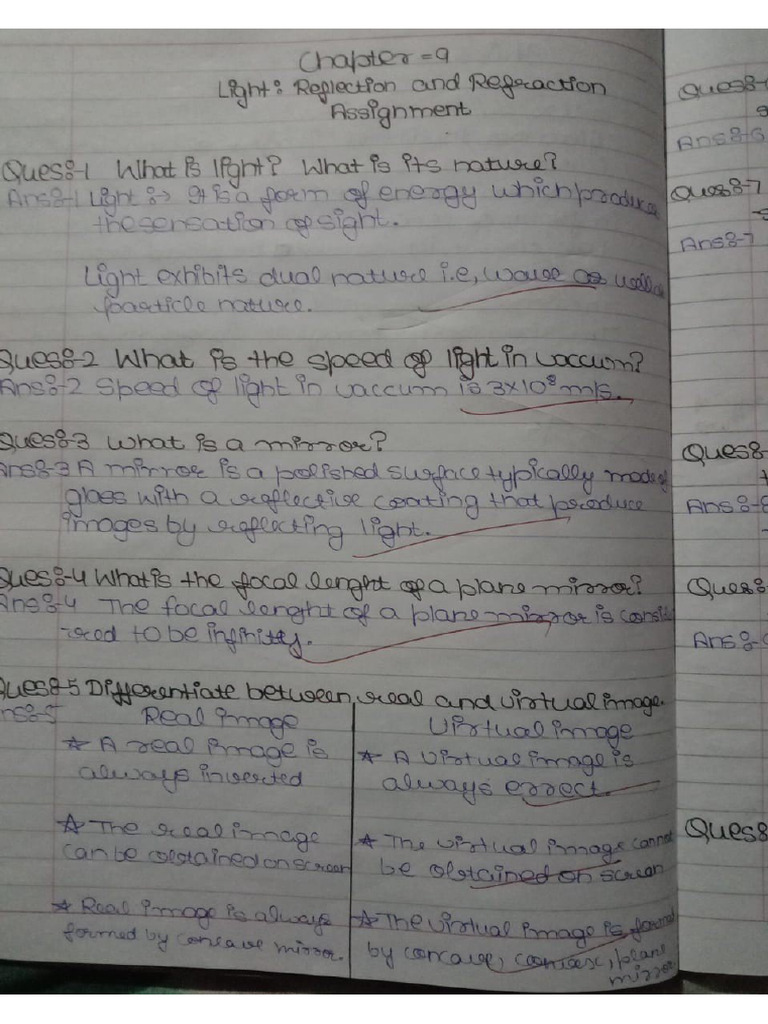 Chapter = 9
Light: Reflection and Refraction
Assignment
Ques:-1 What is light? What is its nature?
Ans:-1 Light :→ It is a form of energy which produces
the sensation of sight.
Light exhibits dual nature i.e, wave as well as
particle nature.
Ques:-2 What is the speed of light in vaccum?
Ans:-2 Speed of light in vaccum is 3×10⁸ m/s.
Ques:-3 What is a mirror?
Ans:-3 A mirror is a polished surface typically made of
glass with a reflective coating that produce
images by reflecting light.
Ques:-4 What is the focal lenght of a plane mirror?
Ans:-4 The focal lenght of a plane mirror is consid
ered to be infinity.
Ques:-5 Differentiate between real and virtual image.
Ans:-5
Real image
* A real image is
always inverted
* The real image
can be obtained on screen
* Real image is always
formed by concave mirror.
Virtual image
* A virtual image is
always errect.
* The virtual image cannot
be obtained on screen
* The virtual image is formed
by concave, convex, plane
mirror
Ques:-6
Ans:-6
Ques:-7
Ans:-7
Ques:-
Ans:-8
Ques:-
Ans:-
Ques: